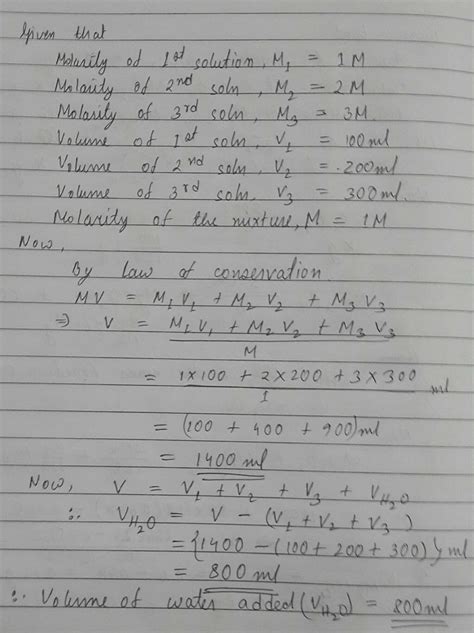 Given that
Molarity of 1st solution, M₁ = 1M
Molarity of 2nd soln, M₂ = 2M
Molarity of 3rd soln, M₃ = 3M.
Volume of 1st soln, V₁ = 100ml
Volume of 2nd soln, V₂ = 200ml
Volume of 3rd soln. V₃ = 300ml.
Molarity of the mixture, M = 1M
Now,
By law of conservation
MV = M₁V₁ + M₂V₂ + M₃V₃
⇒ V = M₁V₁ + M₂V₂ + M₃V₃
M
= 1×100 + 2×200 + 3×300 ml
1
= (100 + 400 + 900)ml
= 1400 ml
Now, V = V₁ + V₂ + V₃ + V_H₂O
∴ V_H₂O = V - (V₁ + V₂ + V₃)
= {1400 - (100 + 200 + 300)} ml
= 800 ml
∴ Volume of water added (V_H₂O) = 800ml